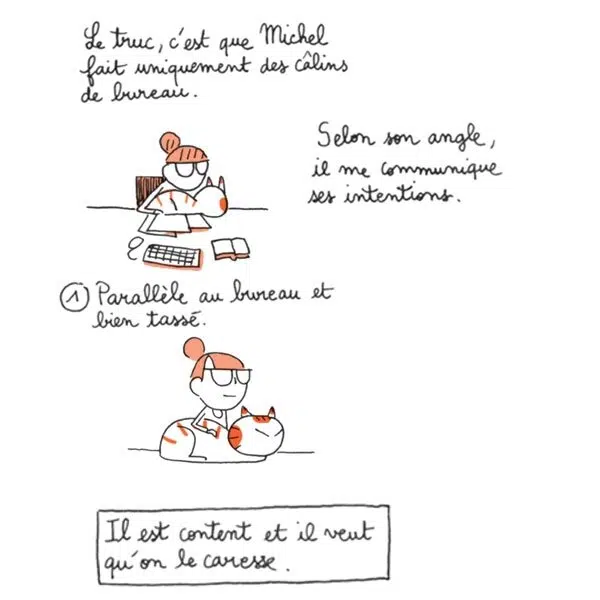 Le truc, c'est que Michel
fait uniquement des câlins
de bureau.
Selon son angle,
il me communique
ses intentions.
1 Parallèle au bureau et
bien tassé.
Il est content et il veut
qu'on le caresse.